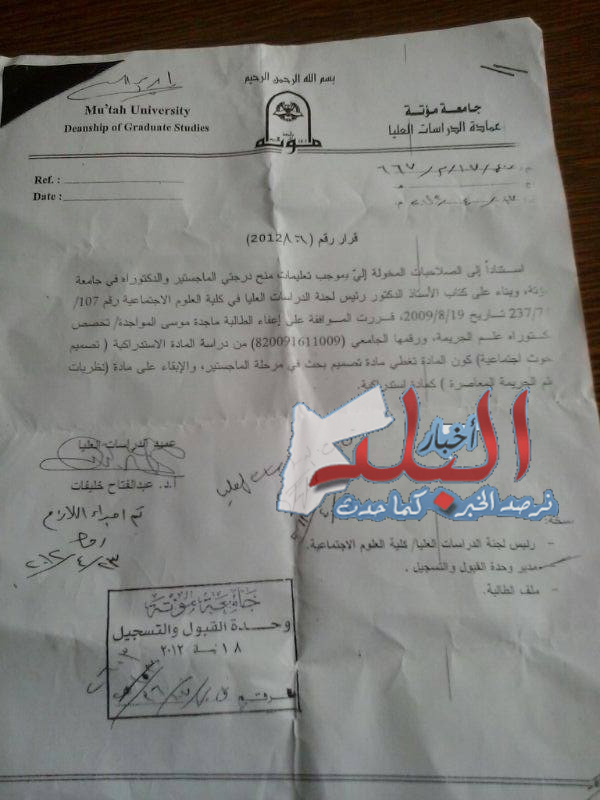 بسم الله الرحمن الرحيم
Mu'tah University
Deanship of Graduate Studies
جامعة مؤتة
عمادة الدراسات العليا
مؤتة
Ref. :
Date :
قرار رقم
استناداً إلى الصلاحيات المخولة إليّ بموجب تعليمات منح درجتي الماجستير والدكتوراه في جامعة
وبناء على كتاب الأستاذ الدكتور رئيس لجنة الدراسات العليا في كلية العلوم الاجتماعية رقم 107/
تاريخ 2009/8/19، قررت الموافقة على إعفاء الطالبة ماجدة موسى المواجدة/ تخصص
علم الجريمة، ورقمها الجامعي (820091611009) من دراسة المادة الاستدراكية ( تصميم
اجتماعية) كون المادة تغطي مادة تصميم بحث في مرحلة الماجستير، والإبقاء على مادة (نظريات
الجريمة المعاصرة ) كمادة استدراكية.
عميد الدراسات العليا
أ.د. عبدالفتاح خليفات
تم اجراء اللازم
٢٠١٢/٤/٢٣
أخبار
البلد
نرصد الخبر كما حدث
- رئيس لجنة الدراسات العليا/ كلية العلوم الاجتماعية.
- مدير وحدة القبول والتسجيل .
- ملف الطالبة.
جامعة مؤتة
وحدة القبول والتسجيل
٢٠١٢